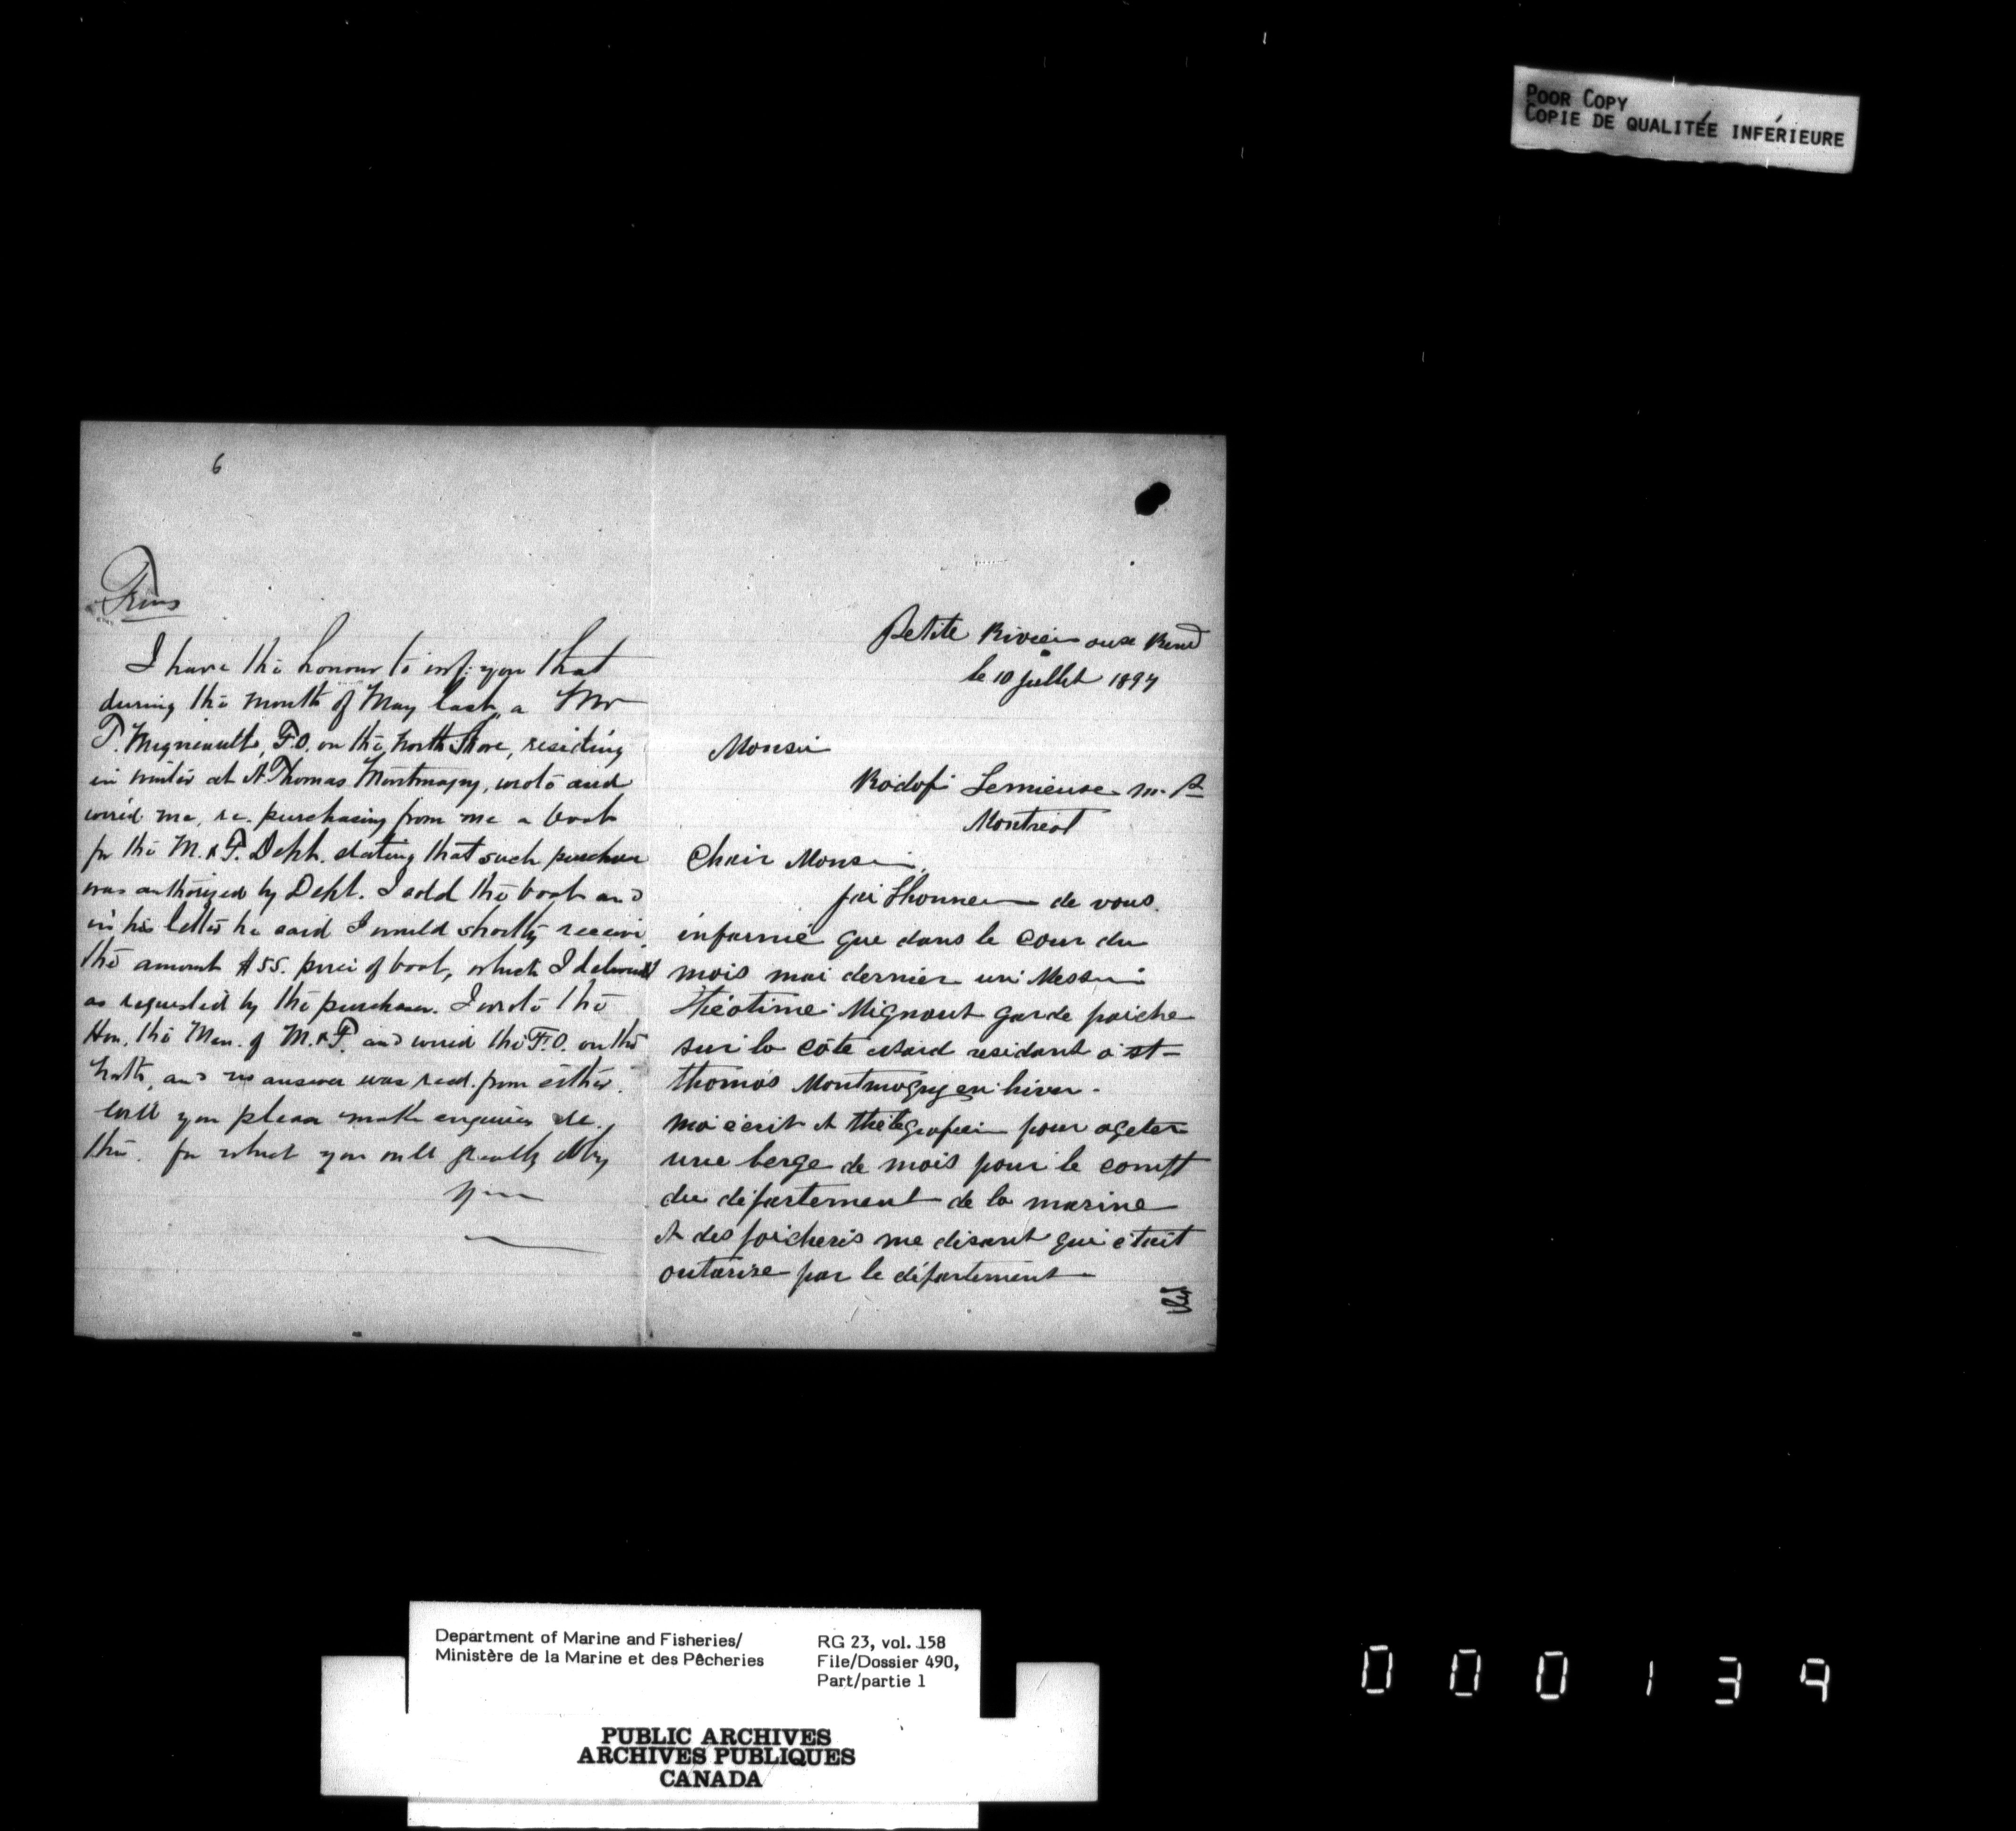 POOR COPY
COPIE DE QUALITÉE INFÉRIEURE
6
Trans
I have the honour to inf. you that
during the month of May last, a Mr
T. Migneault, F.O. on the North Shore, residing
in winter at St Thomas Montmagny, wrote and
wired me, re. purchasing from me a boat
for the M. & F. Deptt. stating that such purchase
was authorized by Dept. I sold the boat and
in his letter he said I would shortly receive
the amount $55. price of boat, which I delivered
as requested by the purchaser. I wrote the
Hon. the Min. of M. & F. and wired the F.O. on the
North, and no answer was recd. from either.
Will you please make enquiries re.
this. for which you will greatly oblige
Petite Rivier
le 10 juillet 1897
Monsir
Rodofi Lemieuse m. P
Montreal
Chair Monsir
jai Lhonneur de vous
informé que dans le cour du
mois mai dernier uni Messir
théotime Mignout garde paiche
sur la côte nord residant a st-
thomas Montmagny en hiver.
ma écrit et pour ageter
une berge de mois pour le compt
du département de la marine
et des paicheris me disant qui était
outorise par le département
Department of Marine and Fisheries/
Ministère de la Marine et des Pêcheries
RG 23, vol. 158
File/Dossier 490,
Part/partie 1
PUBLIC ARCHIVES
ARCHIVES PUBLIQUES
CANADA
000139